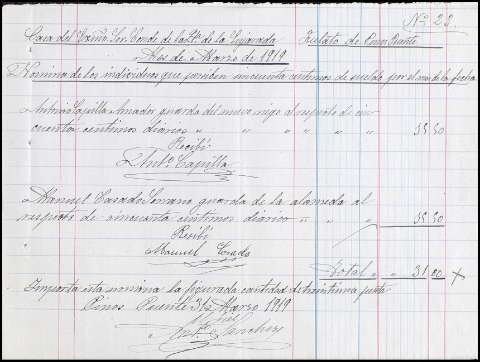 Nº 22
Casa del Exmo. Sor. Conde de la Pta. de la Soyarada Zulato de Pinos Puente
Mes de Marzo de 1919
Nomina de los individuos que perciben cincuenta centimos de sueldo por el mes de la fecha
Antonio Capilla Amador guarda del nuevo riego al respecto de cin-
cuenta centimos diarios " " " " " " 15 50
Recibi
Antº. Capilla
Manuel Casado Serrano guarda de la alameda al
respecto de cincuenta centimos diarios " " " 15 50
Recibi
Manuel Casado
Total " " 31 00
Importa esta nomina la figurada cantidad de treintiuna pesetas
Pinos Puente 31 Marzo 1919
Antº. Sanchez